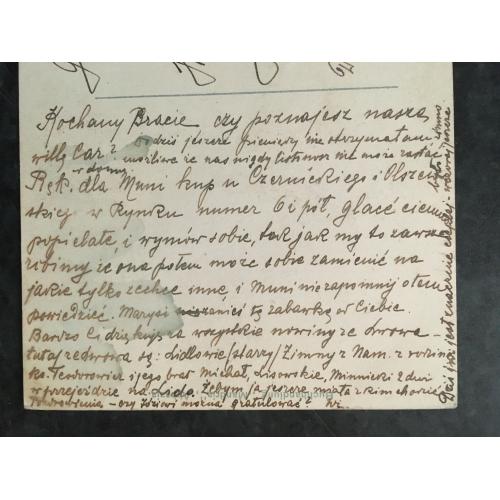 Kochany Bracie czy poznajesz naszą
willę Car? Do dziś jeszcze pieniędzy nie otrzymałam
możliwe że nas nigdy listonosz nie może zastać
w domu
Ręk. dla Muni kup u Czernickiego i Olszew
skiej w Rynku numer 6 i pół, glacé ciem
popielate, i wymów sobie, tak jak my to zawsze
robimy że ona potem może sobie zamienić na
jakie tylko zechce inne i Muni nie zapomnij o tem
powiedzieć. Marysi zanieś tę zabawkę od Ciebie.
Bardzo Ci dziękuję za wszystkie nowiny ze Lwowa
tutaj ze Lwowa są: Lidlowie (starzy) Zimny z Nam. z rodziną
Teodorowicz i jego brat Michał, Lisowskie, Minnicki 2 dni
w przejeździe na Lido. Żebym ja jeszcze miała z kim chodzić
Pozdrowienia – czy Józiowi można gratulować?
Dziś jest znacznie cieplej